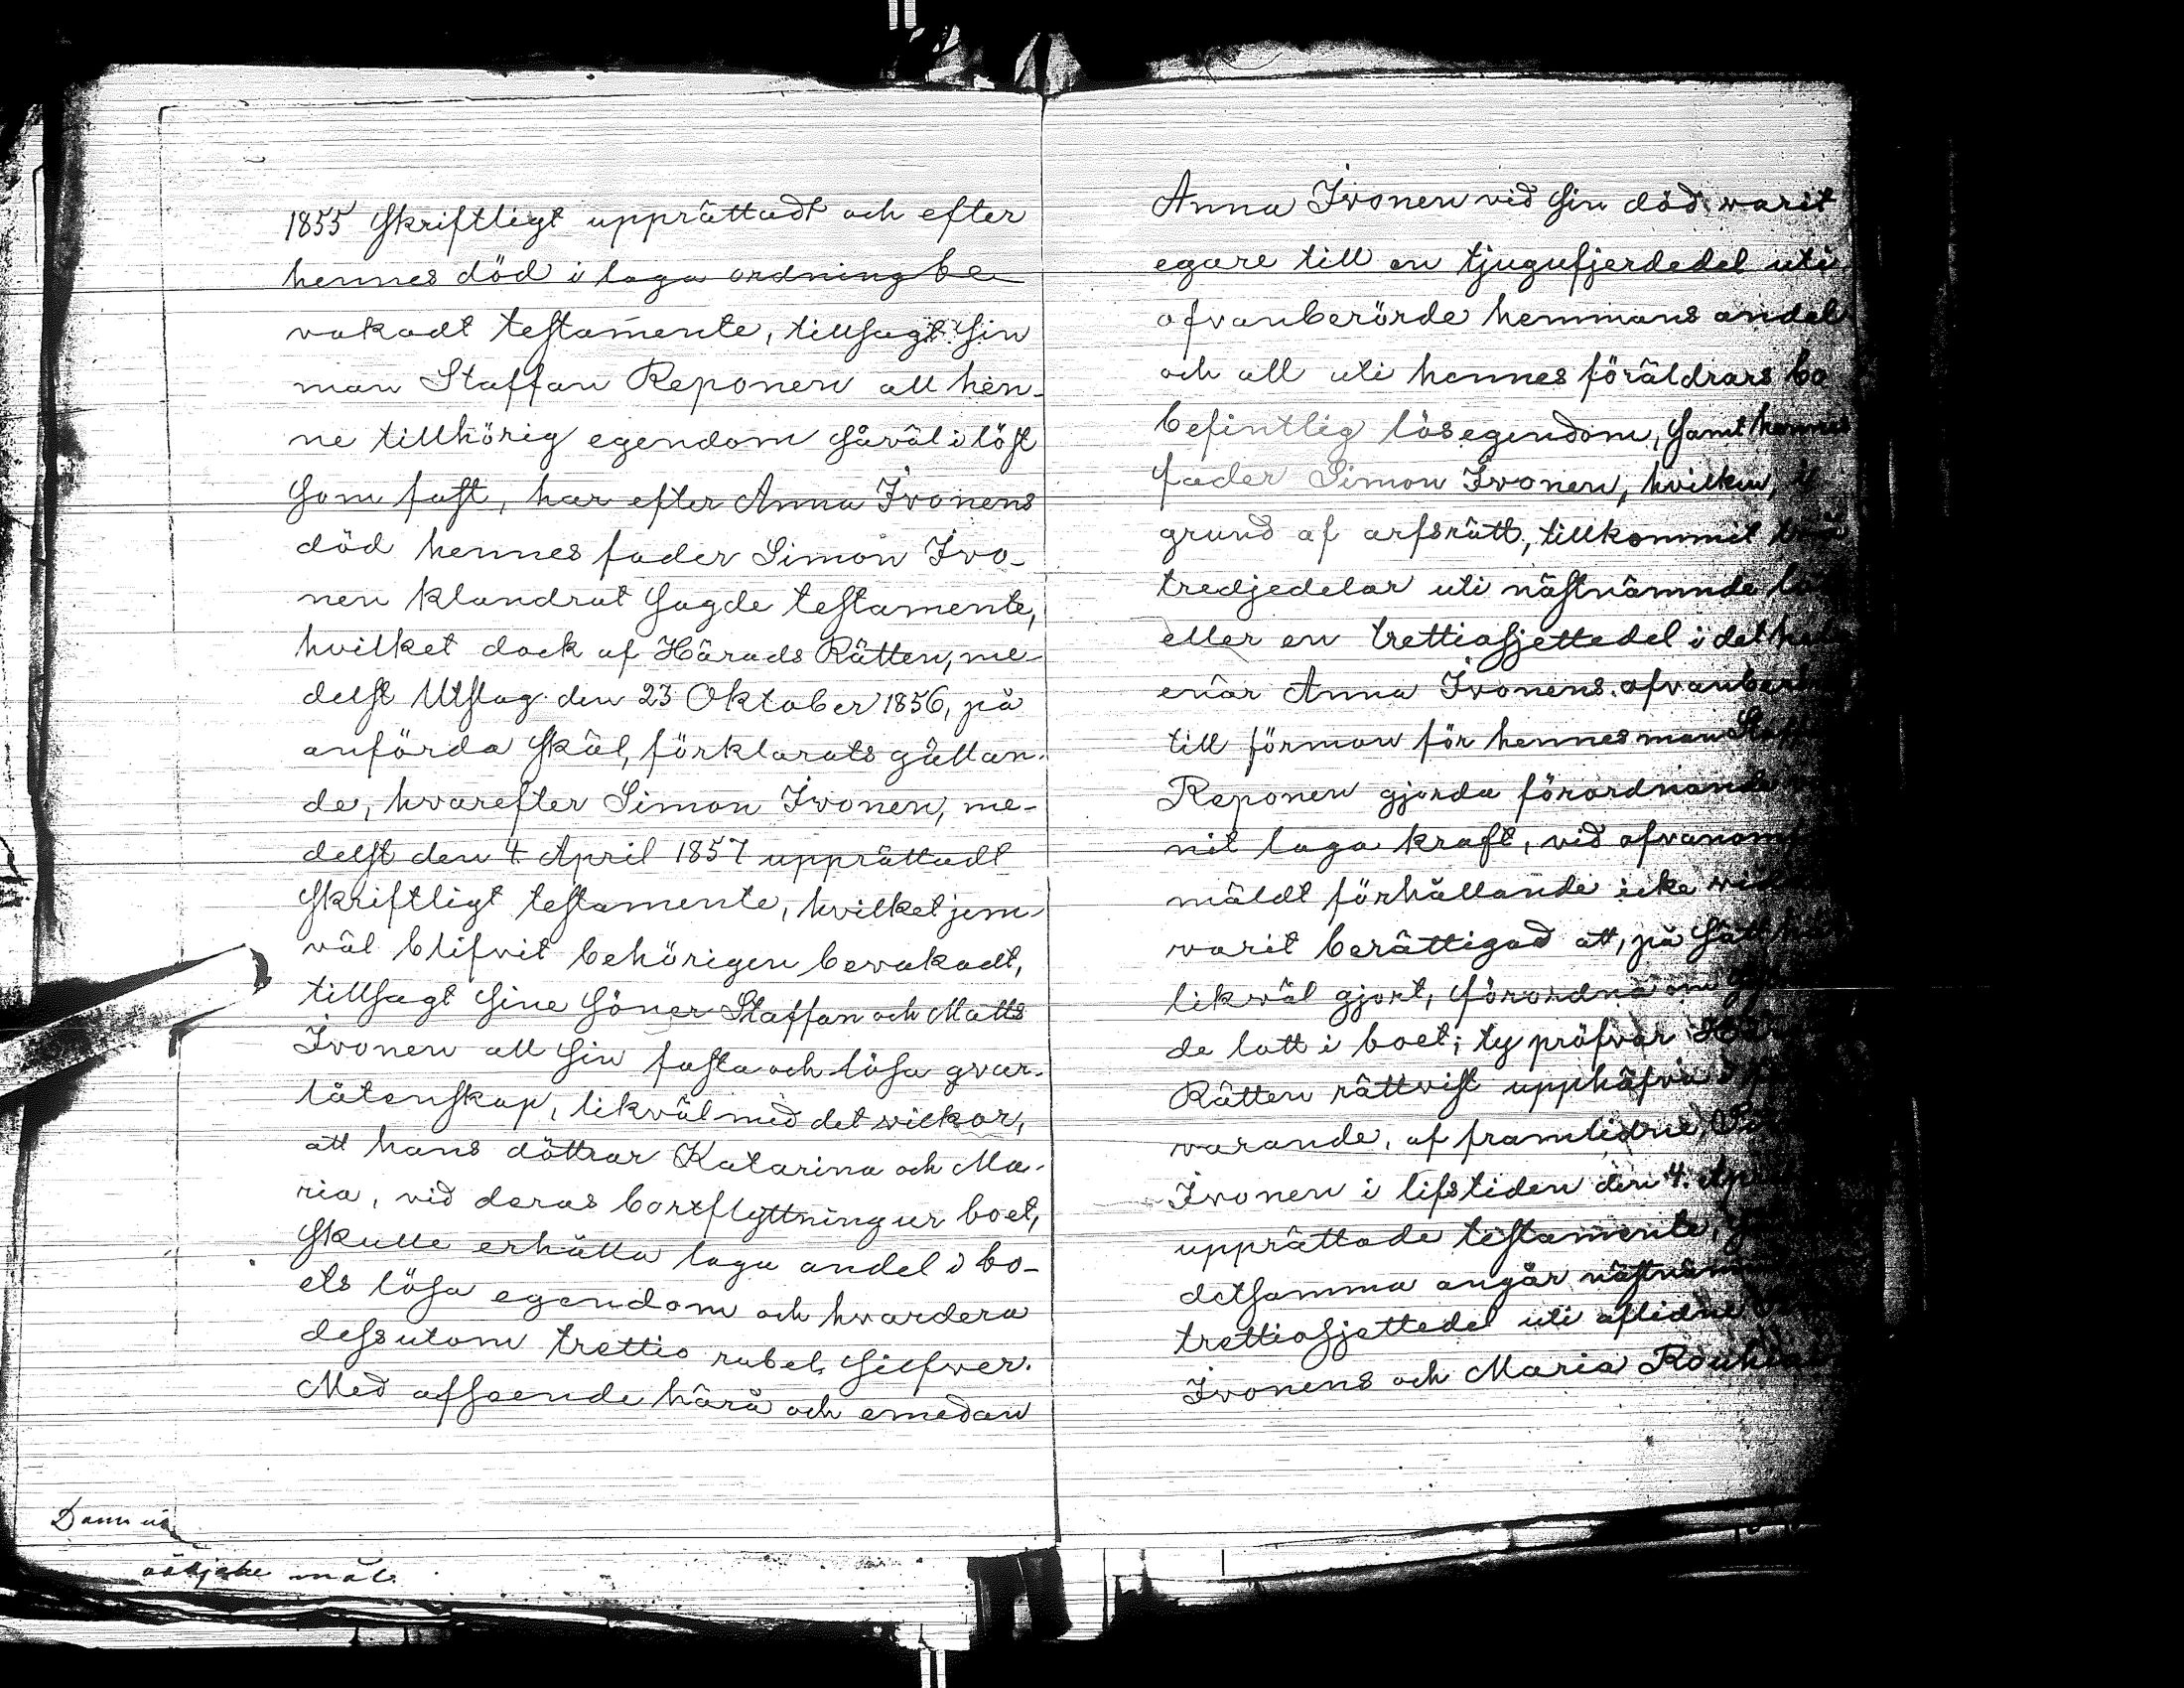 1855 skriftligt upprättadt och efter
hennes död i laga ordning be
vakadt testamente, tillsagt sin
man Staffan Reponen all hen-
ne tillhörig egendom såväl i löst
som fast, har efter Anna Ivonens
död hennes fader Simon Ivo-
nen klandrat sagde testamente,
hvilket dock af Härads Rätten, me-
delst Utslag den 23 Oktober 1856, på
anförda skäl, förklarats gällan-
de, hvarefter Simon Ivonen, me-
delst den 4 April 1857 upprättadt
skriftligt testamente, hvilket jem-
väl blifvit behörigen bevakadt,
tillsagt sine söner Staffan och Matts
Ivonen all sin fasta och lösa qvar-
låtenskap, likväl med det vilkor,
att hans döttrar Katarina och Ma-
ria, vid deras bortflyttning ur boet,
skulle erhålla laga andel i bo-
ets lösa egendom och hvardera
dessutom trettio rubel silfver.
Med afseende härå och emedan
måls
Anna Ivonen vid sin död varit
egare till en tjugufjerdedel uti
ofvanberörde hemmans andel
och all uti hennes föräldrars bo
befintlig lösegendom, samt hennes
fader Simon Ivonen, hvilken,
grund af arfsrätt, tillkommit
tredjedelar uti nästnämnde
eller en trettiosjettedel i det
enär Anna Ivonens
till förmon för hennes man
Reponen gjorda förordnande
nit laga kraft, vid
mäldt förhållande icke
varit berättigad att, på sätt
likväl gjort, förordna om
de lott i boet; ty pröfvar
Rätten rättvist upphäfva
varande, af framlidne
Ivonen i lifstiden den 4. April
upprättade testamente,
detsamma angår
trettiosjettedel uti aflidne
Ivonens och Maria